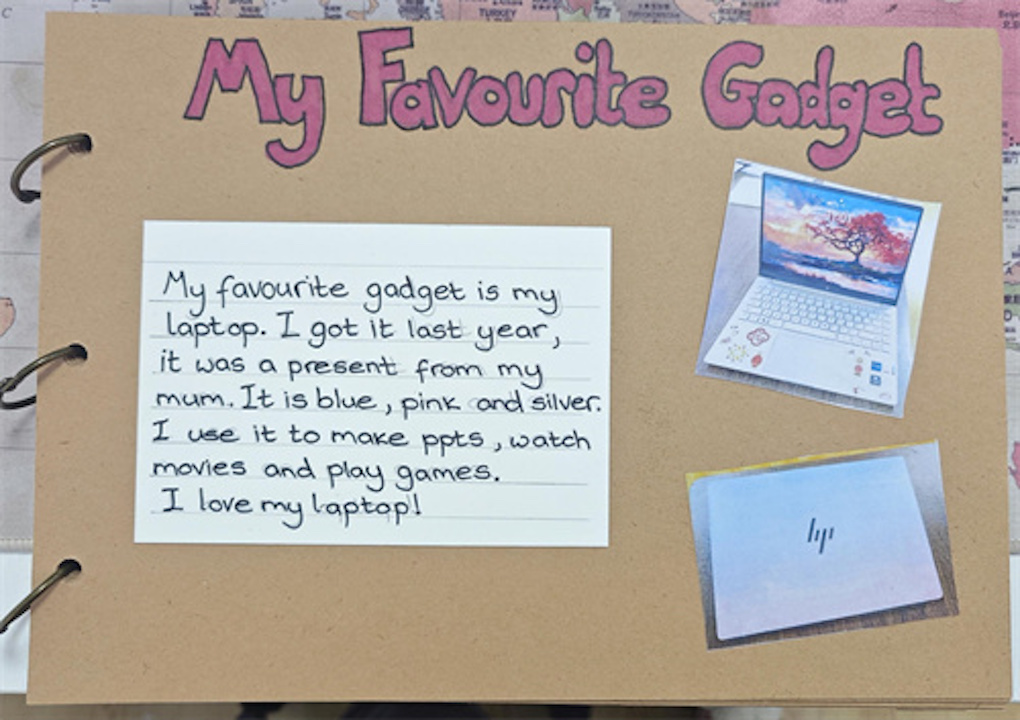 TURKEY
My Favourite Gadget
My favourite gadget is my
laptop. I got it last year,
it was a present from my
mum. It is blue, pink and silver.
I use it to make ppts, watch
movies and play games.
I love my laptop!
hp